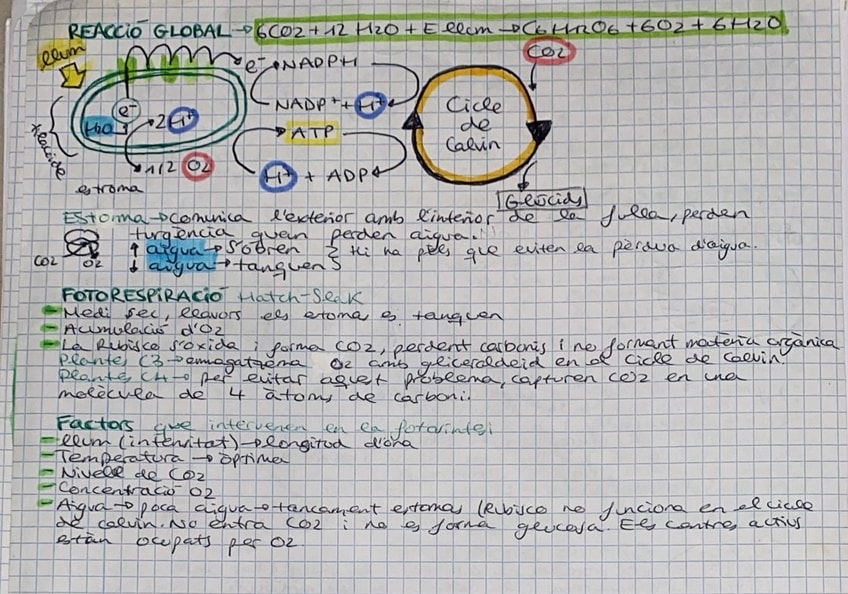 REACCIÓ GLOBAL → 6CO2 + 12 H2O + E llum → C6H12O6 + 6O2 + 6H2O
llum
e- → NADPH
CO2
NADP+ + H+
Cicle
de
Calvin
e-
H2O
2 H+
ATP
tilacoide
1/2 O2
H+ + ADP
estroma
Glúcids
Estoma → comunica l'exterior amb l'interior de la fulla, perden
turgència quan perden aigua.
↑ aigua → s'obren } Hi ha pèls que eviten la pèrdua d'aigua.
CO2 O2 ↓ aigua → tanquen
FOTORESPIRACIÓ Hatch-Slak
- Medi sec, llavors els estoma es tanquen
- Acumulació d'O2
- La Rubisco s'oxida i forma CO2, perdent carbonis i no formant matèria orgànica
Plantes C3 → emmagatzema O2 amb gliceraldeid en el Cicle de Calvin.
Plantes C4 → per evitar aquest problema, capturen CO2 en una
molècula de 4 àtoms de carboni.
Factors que intervenen en la fotosíntesi
- llum (intensitat) → longitud d'ona
- Temperatura → òptima
- Nivell de CO2
- Concentració O2
- Aigua → poca aigua → tancament estomes (Rubisco no funciona en el cicle
de calvin. No entra CO2 i no es forma glucosa. Els centres actius
estan ocupats per O2.